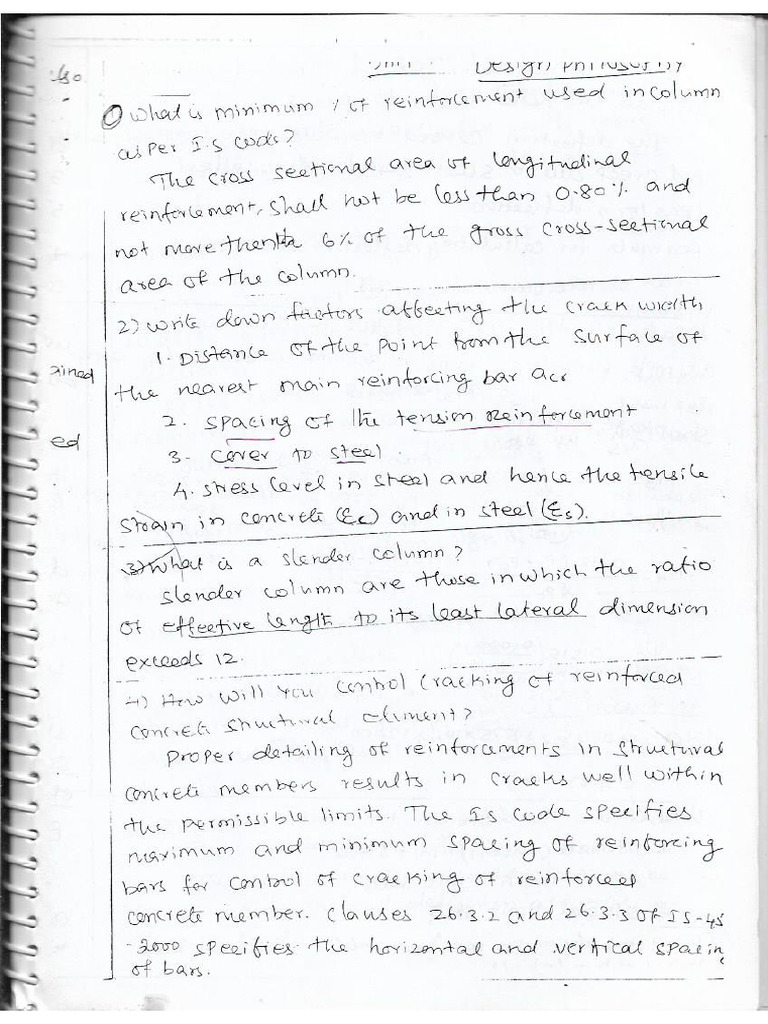 Design Philosophy
1) What is minimum % of reinforcement used in column
as per I.S code?
The cross sectional area of longitudinal
reinforcement, shall not be less than 0.80% and
not more then 6% of the gross cross-sectional
area of the column.
2) write down factors affecting the crack width
1. Distance of the point from the surface of
the nearest main reinforcing bar acr
2. spacing of the tension reinforcement
3. cover to steel.
4. stress level in steel and hence the tensile
strain in concrete (Ɛc) and in steel (Ɛs).
3) What is a slender column?
slender column are those in which the ratio
of effective length to its least lateral dimension
exceeds 12.
4) How will you control cracking of reinforced
concrete structural element?
Proper detailing of reinforcements in structural
concrete members results in cracks well within
the permissible limits. The Is code specifies
maximum and minimum spacing of reinforcing
bars for control of cracking of reinforced
concrete member. Clauses 26.3.2 and 26.3.3 of IS-45
-2000 specifies the horizontal and vertical spacin
of bars.
ained
ed